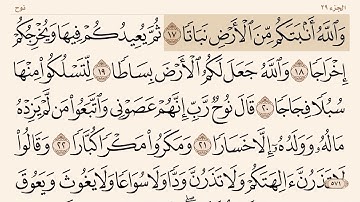 الجزء ٢٩ نوح
وَٱللَّهُ أَنۢبَتَكُم مِّنَ ٱلْأَرْضِ نَبَاتًا ١٧ ثُمَّ يُعِيدُكُمْ فِيهَا وَيُخْرِجُكُمْ
إِخْرَاجًا ١٨ وَٱللَّهُ جَعَلَ لَكُمُ ٱلْأَرْضَ بِسَاطًا ١٩ لِّتَسْلُكُوا۟ مِنْهَا
سُبُلًا فِجَاجًا ٢٠ قَالَ نُوحٌ رَّبِّ إِنَّهُمْ عَصَوْنِى وَٱتَّبَعُوا۟ مَن لَّمْ يَزِدْهُ
مَالُهُۥ وَوَلَدُهُۥٓ إِلَّا خَسَارًا ٢١ وَمَكَرُوا۟ مَكْرًا كُبَّارًا ٢٢ وَقَالُوا۟
لَا تَذَرُنَّ ءَالِهَتَكُمْ وَلَا تَذَرُنَّ وَدًّا وَلَا سُوَاعًا وَلَا يَغُوثَ وَيَعُوقَ
٥٧١